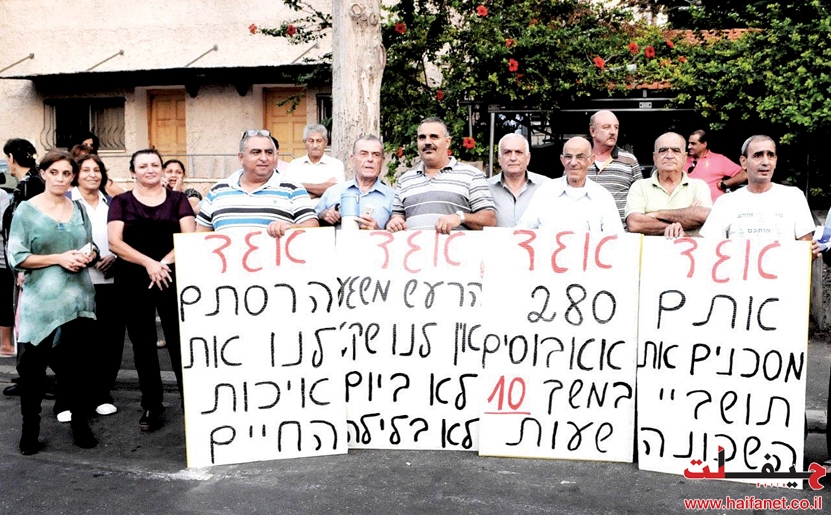 אגד
הרסתם
לנו את
איכות
החיים
אגד
הרעש משגע
אין לנו שקט
לא ביום
לא בלילה
אגד
280
אאבוסים
במשך 10
שעות
אגד
אתם
מסכנים את
תושביי
השכונה
حيفا نت
www.haifanet.co.il